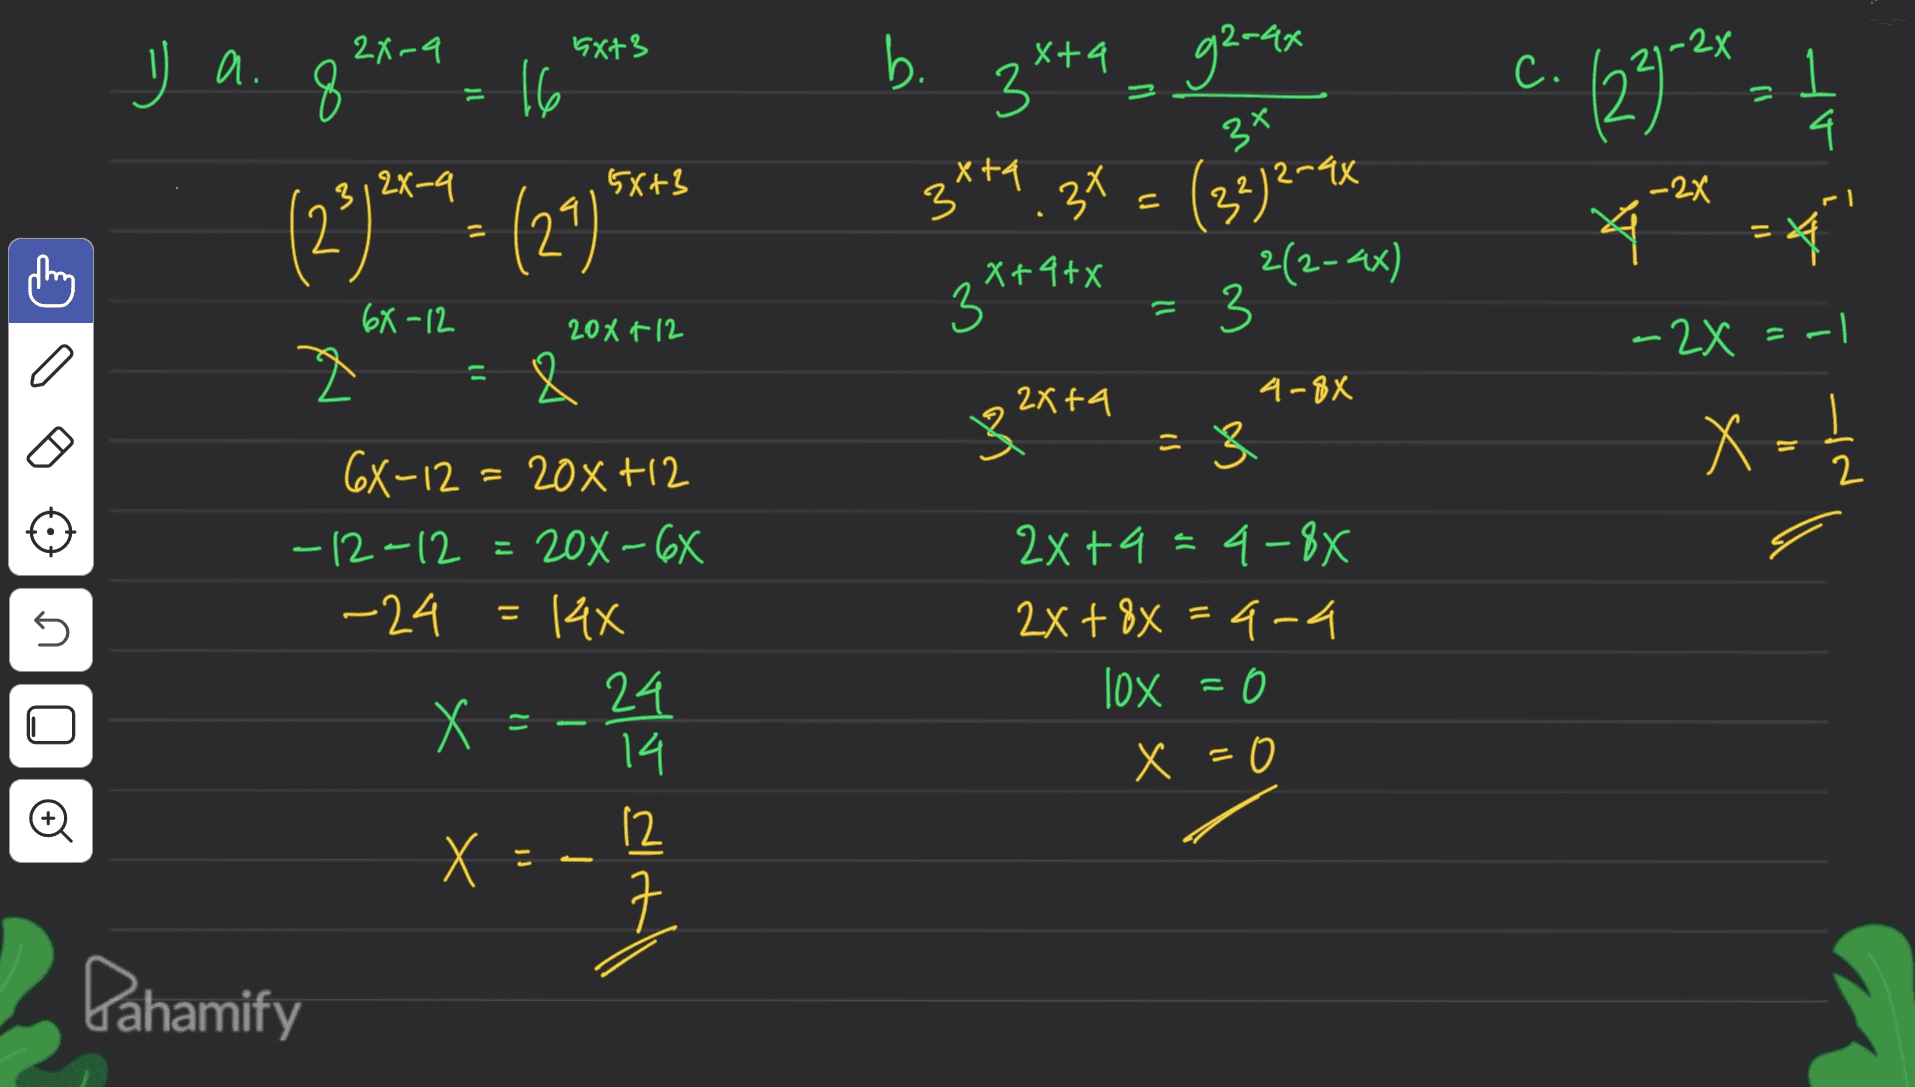 1) a. 8^(2x-4) = 16^(5x+3)
(2^3)^(2x-4) = (2^4)^(5x+3)
2^(6x-12) = 2^(20x+12)
6x-12 = 20x+12
-12-12 = 20x-6x
-24 = 14x
x = -24/14
x = -12/7
b. 3^(x+4) = 9^(2-4x)/3^x
3^(x+4) . 3^x = (3^2)^(2-4x)
3^(x+4+x) = 3^(2(2-4x))
3^(2x+4) = 3^(4-8x)
2x+4 = 4-8x
2x+8x = 4-4
10x = 0
x = 0
c. (2^2)^(-2x) = 1/4
4^(-2x) = 4^(-1)
-2x = -1
x = 1/2
Pahamify